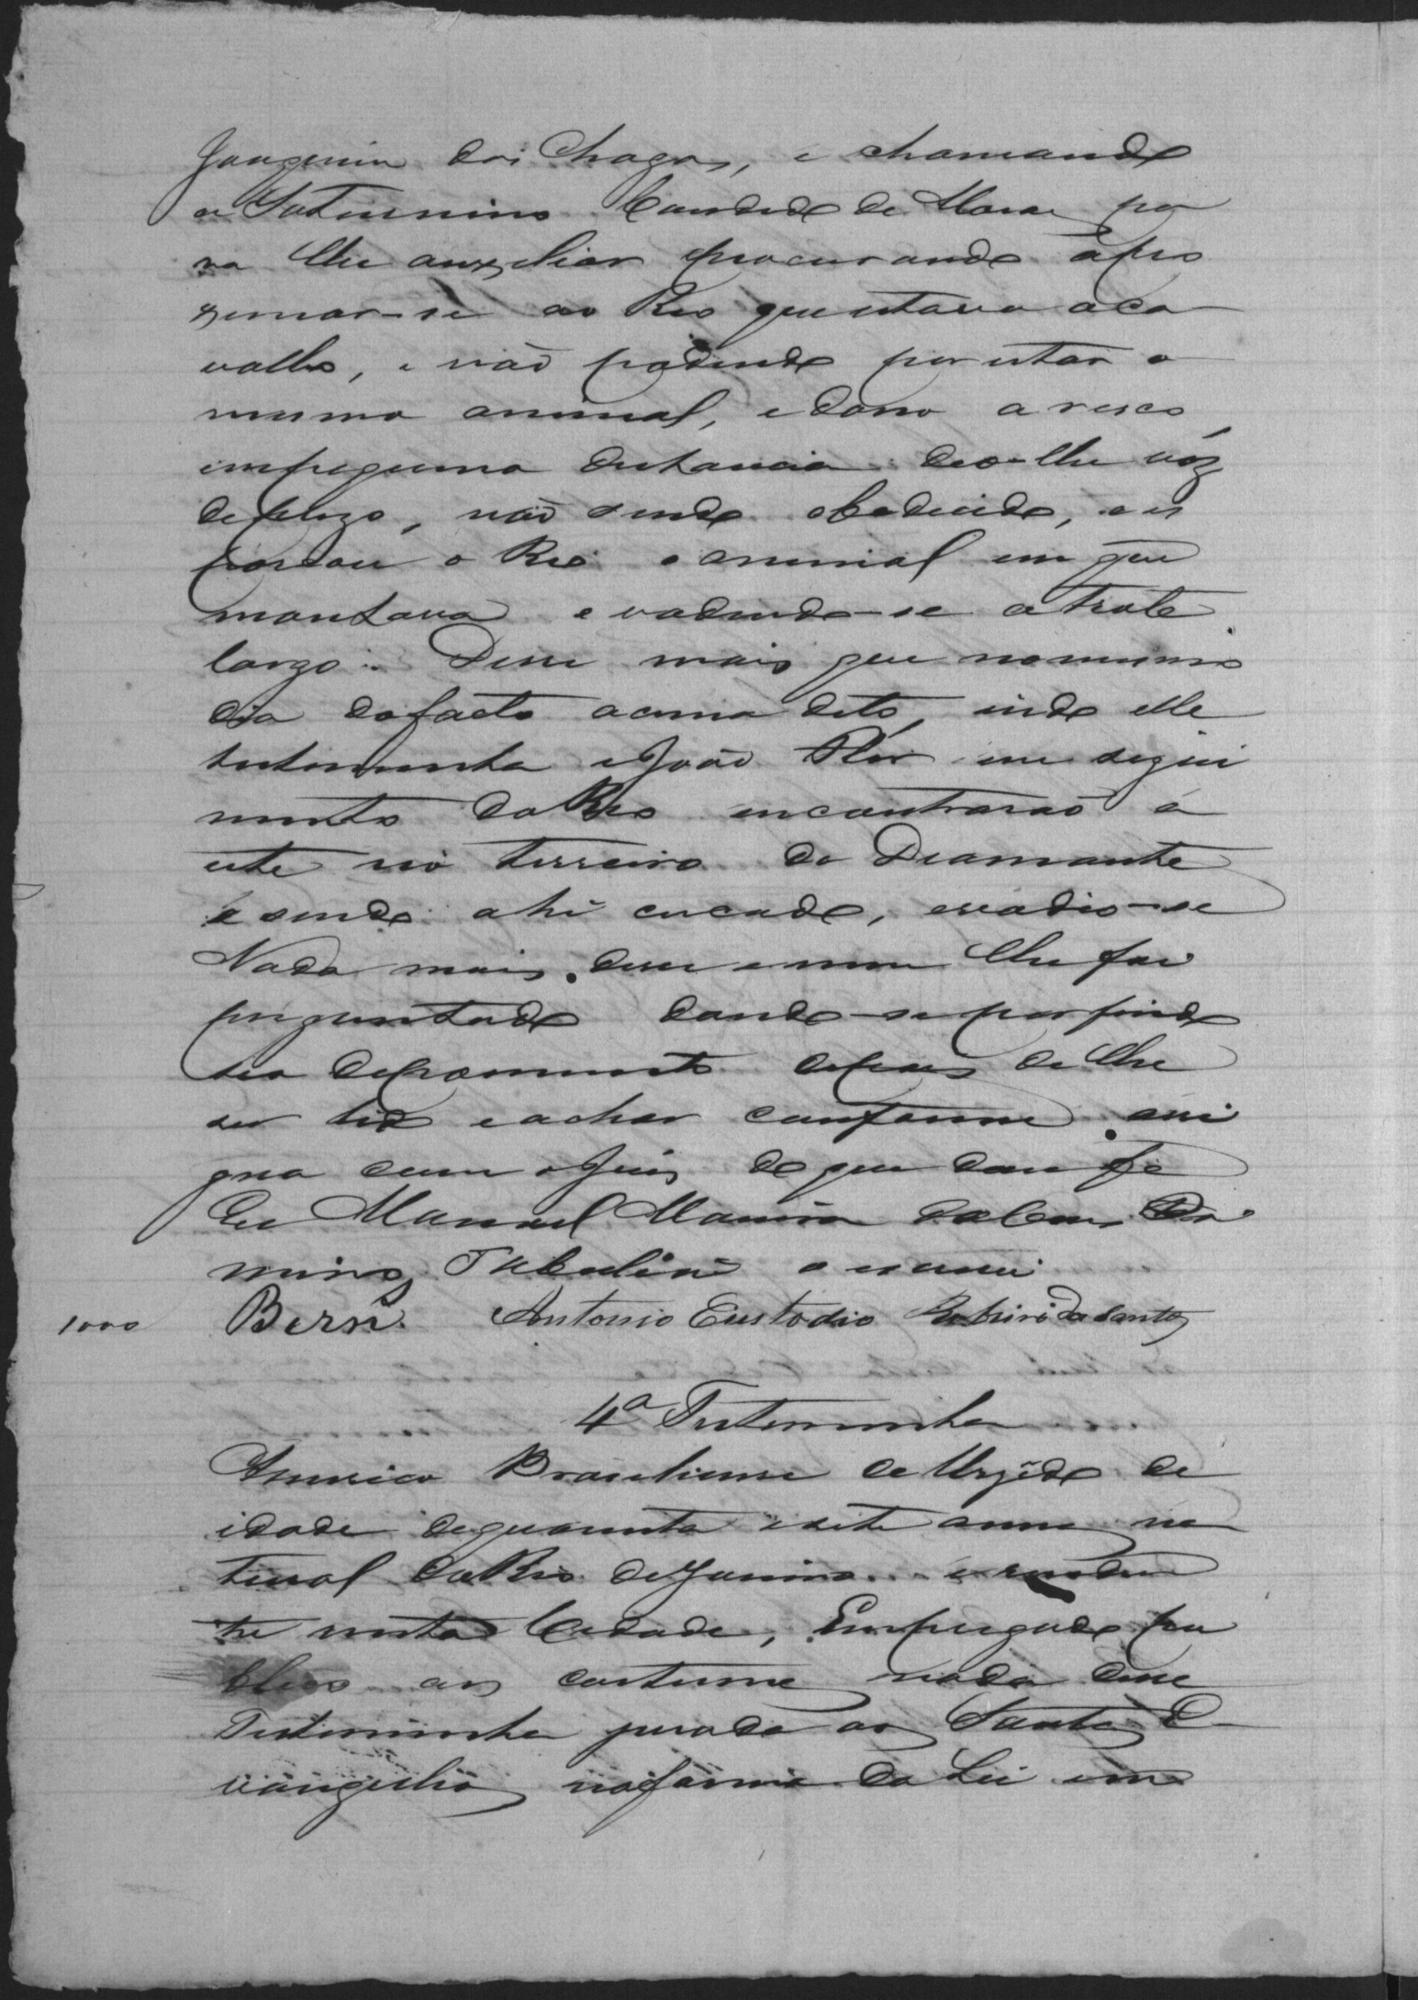 Joaquim das Chagas, e chamando
a Saturnino Candido de Moraes pa
ra lhe auxiliar procurando apro
ximar-se ao Reo que estava a ca
vallo, e não podendo por estar o
mesmo animal, e dono arisco,
em pequena distancia deo-lhe vóz
de prizo, não sendo obedecido, es
porôou o Reo o animal em que
montava evadindo-se a trote
largo. Disse mais que no mesmo
dia do facto acima dito, indo elle
testemunha e João Flôr em segui
mento do Reo encontrarão a
este no terreiro do Diamante
e sendo ahi cercado, evadio-se
Nada mais disse e nem lhe foi
perguntado dando-se por findo
seu depoimento depois de lhe
ser lido e achar conforme assi
gna com o Juis de que dou fé
Eu Manoel Moreira da
Tabelião o escrevi
1000 Bern. Antonio Custodio Ribeiro dos Santos
4ª Testemunha
Americo Brasiliense de de
idade de quarenta e sete annos na
tural do Rio de Janeiro e residen
te nesta Cidade, Empregado pu
blico aos costumes nada disse
Testemunha jurada aos Santos E
vangelhos na forma da Lei em